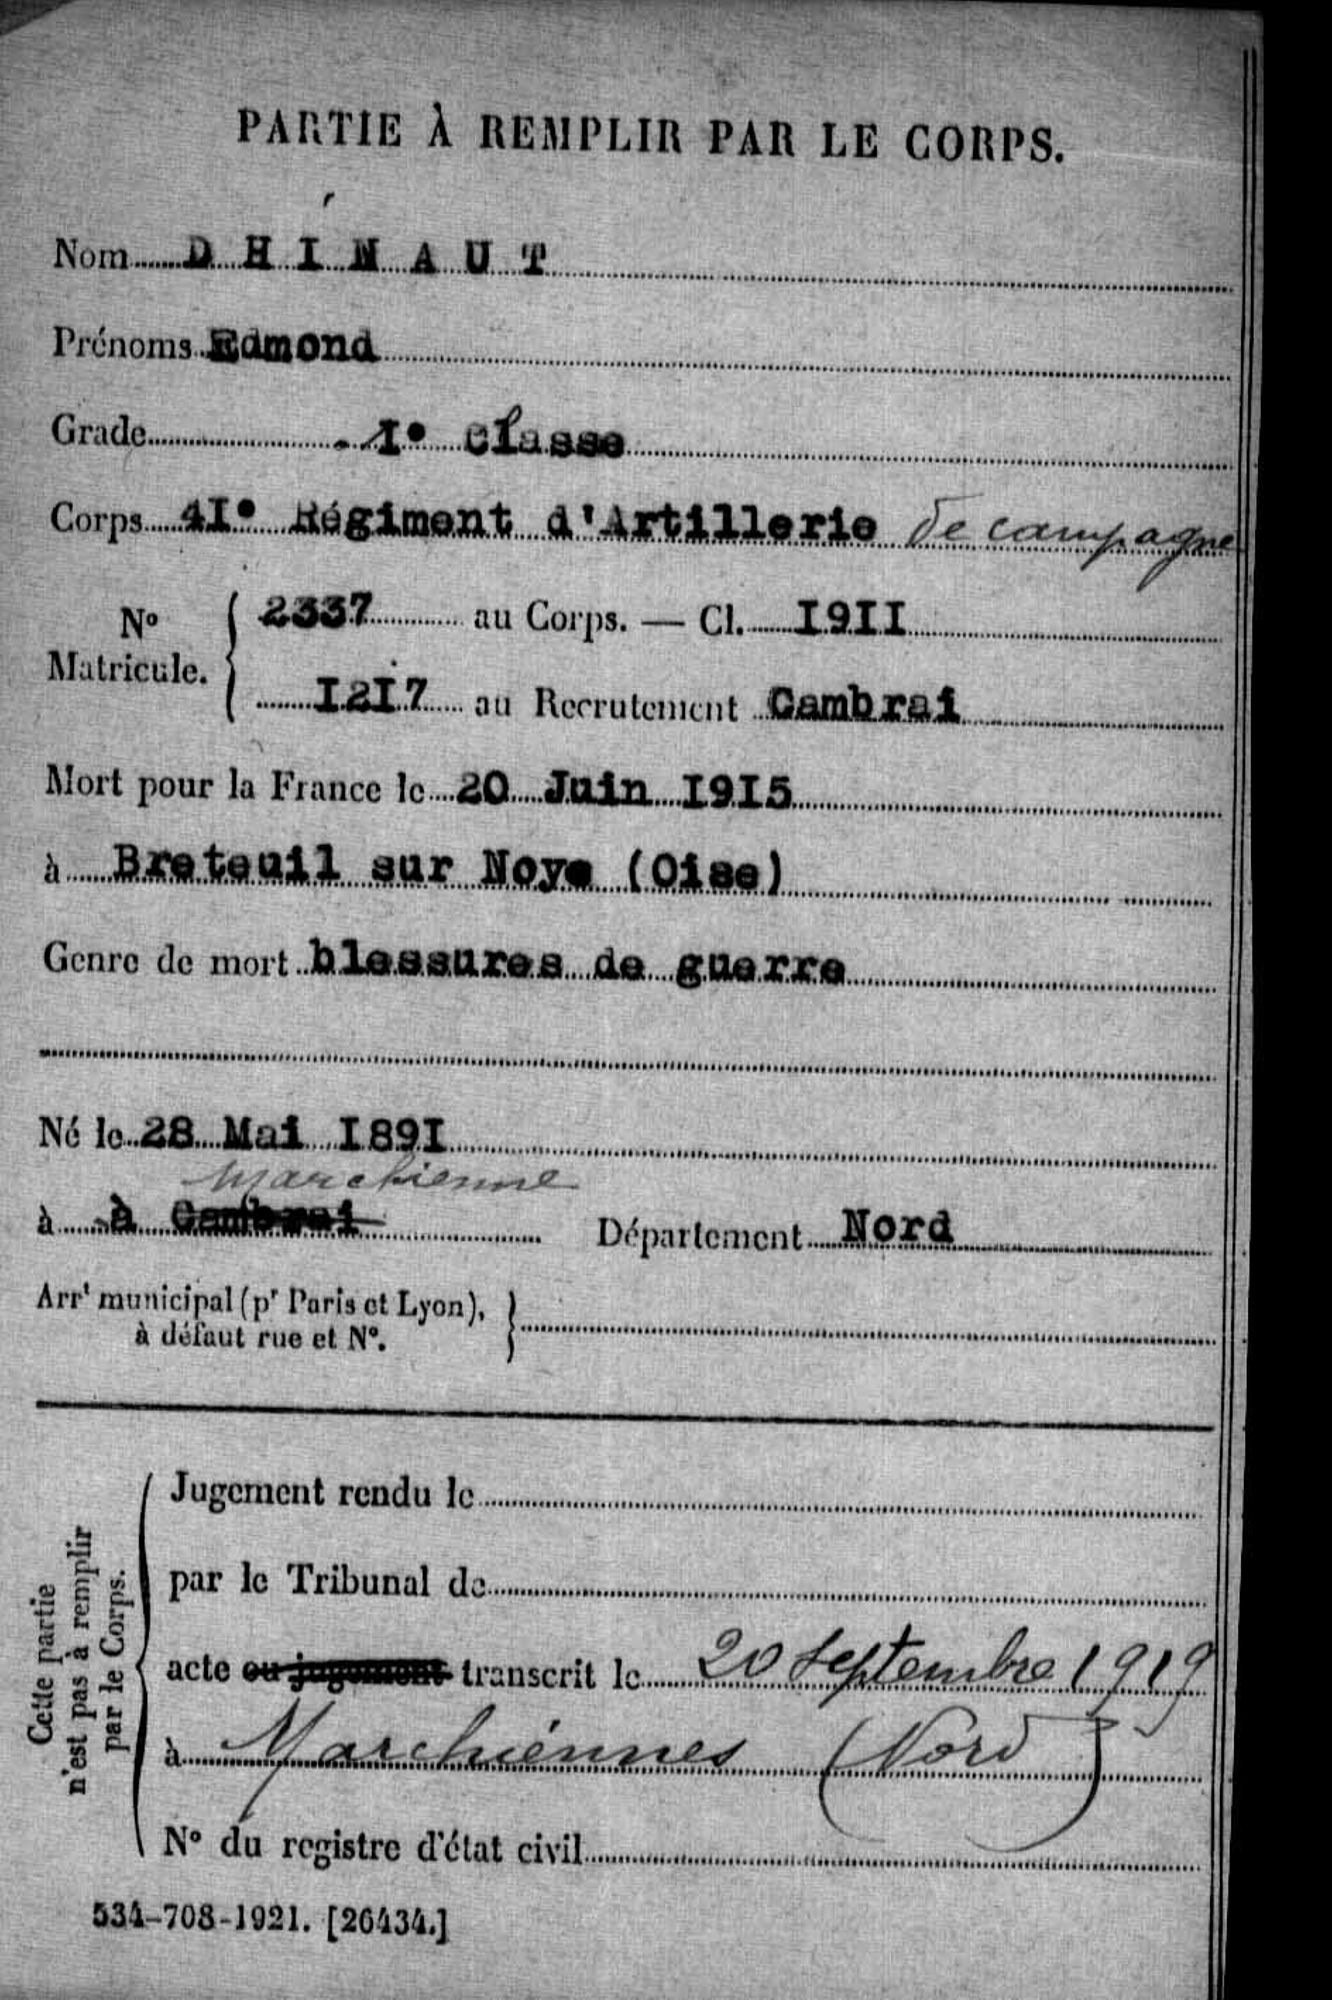 PARTIE À REMPLIR PAR LE CORPS.
Nom DHINAUT
Prénoms Edmond
Grade 1° classe
Corps 41° Régiment d'Artillerie de campagne
N° Matricule. { 2337 au Corps. — Cl. 1911
1217 au Recrutement Cambrai
Mort pour la France le 20 Juin 1915
à Breteuil sur Noye (Oise)
Genre de mort blessures de guerre
Né le 28 Mai 1891
Marchienne
à à Cambrai Département Nord
Arrt municipal (pr Paris et Lyon), }
à défaut rue et N°.
Cette partie
n'est pas à remplir
par le Corps.
Jugement rendu le
par le Tribunal de
acte ou jugement transcrit le 20 septembre 1919
à Marchiennes (Nord)
N° du registre d'état civil
534-708-1921. [26434.]